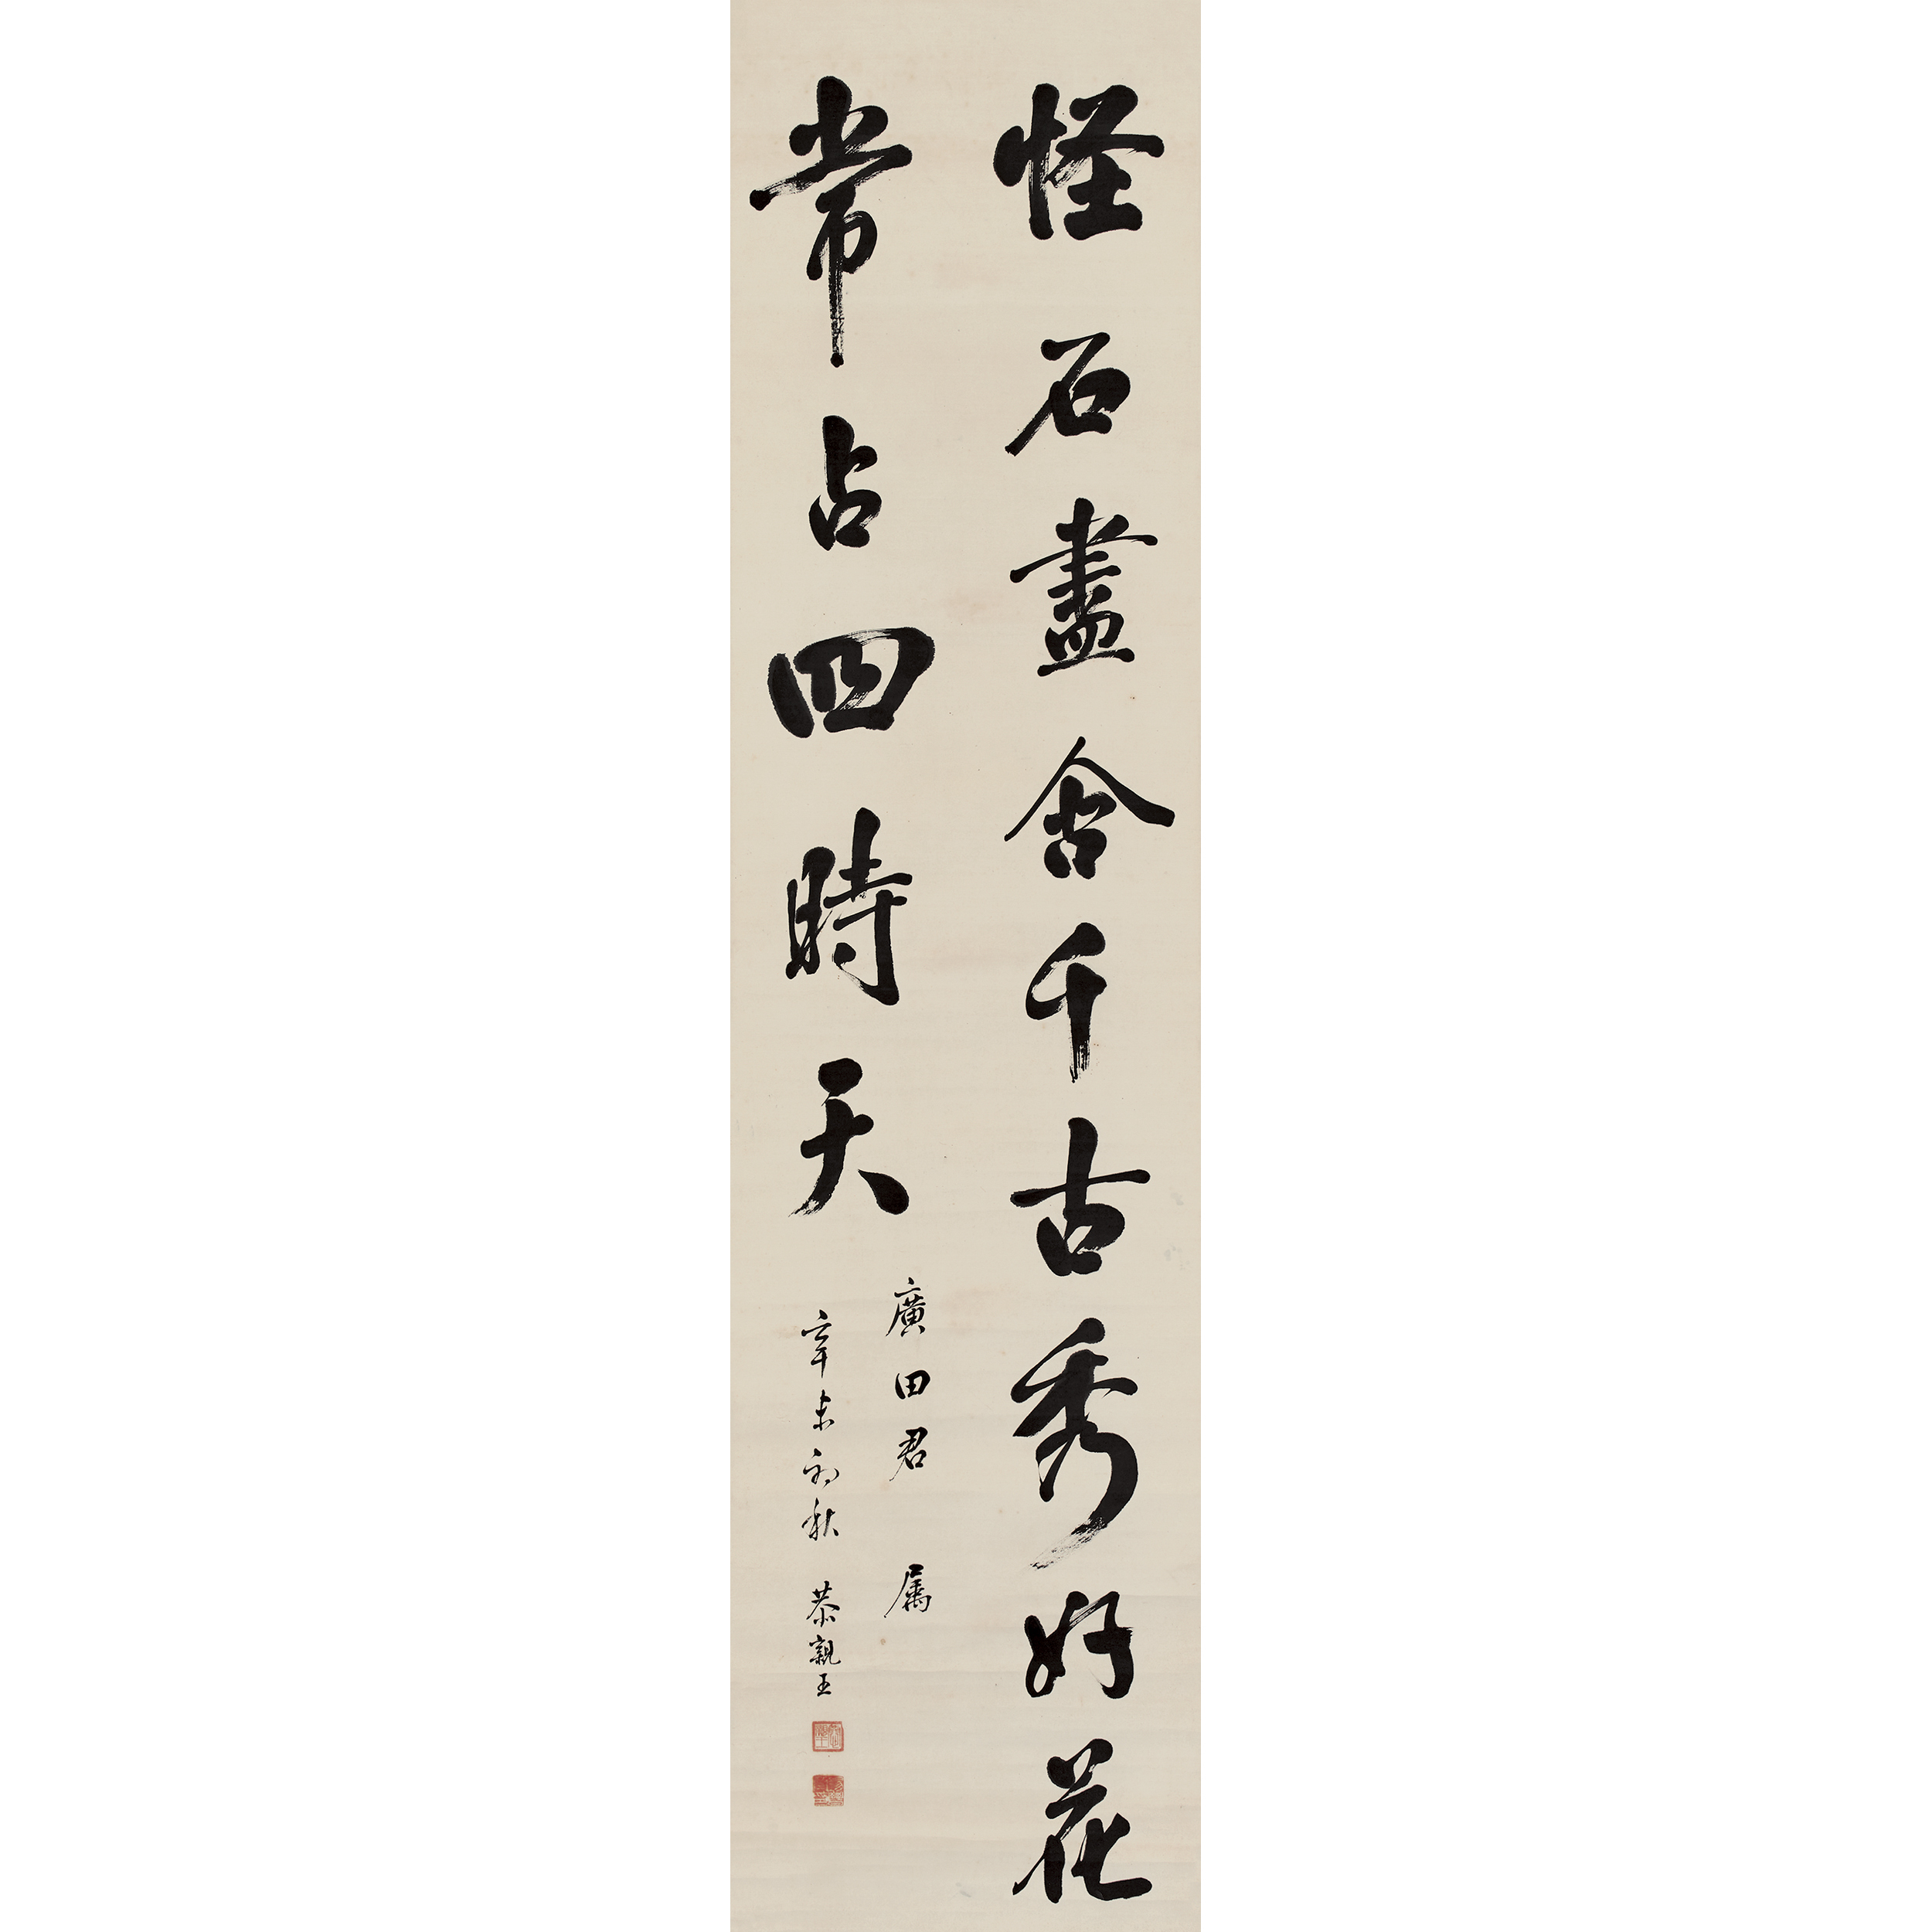 怪石盡含千古秀好花
常占四時天
廣田君 属
辛未初秋 恭親王